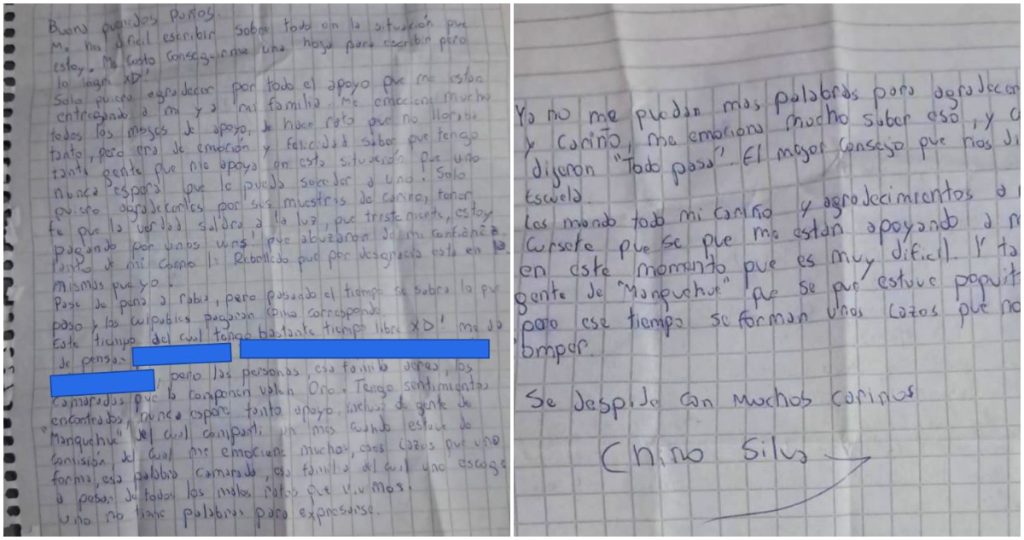 Bueno queridos Puños.
Me ha dificil escribir sobre todo en la situación que
estoy. Me costo conseguirme una hoja para escribir pero
lo logre XD!
Solo quiero agradecer por todo el apoyo que me están
entregando a mi y a mi familia. Me emociono mucho
todos los msges de apoyo, de hace rato que no lloraba
tanto, pero era de emoción y felicidad saber que tengo
tanta gente que me apoya en esta situación que uno
nunca espera que le pueda suceder a uno. Solo
quiero agradecerles por sus muestras de cariño, tener
fe que la verdad saldra a la luz, que tristemente, estoy
pagando por unos wns! que abuzaron de mi confianza
tanto de mi compa l: Rebolledo que por desgracia esta en las
mismas que yo.
Pase de pena a rabia, pero pasando el tiempo se sabra lo que
paso y los culpables pagaran como corresponde.
Este tiempo del cual tengo bastante tiempo libre XD! me da
de pensar
, pero las personas, esa familia verde, los
camaradas que la componen valen Oro. Tengo sentimientos
encontrados, nunca espere tanto apoyo, incluso de gente de
"Manquehue" del cual comparti un mes cuando estuve de
comisión del cual me emocione mucho, esos lazos que uno
forma, esa palabra camarada, esa familia del cual uno escoge
a pesar de todos los malos ratos que vivimos.
Uno no tiene palabras para expresarse.
Ya no me quedan mas palabras para agradecer
y cariño, me emociona mucho saber eso, y
dijeron "Todo pasa". El mejor consejo que nos di
Escuela.
Les mando todo mi cariño y agradecimientos a
cursete que se que me están apoyando a m
en este momento que es muy dificil. Y ta
gente de "Manquehue" que se que estuve poquit
pero ese tiempo se forman unos lazos que no
omper.
Se despide con muchos cariños
Chino Silva